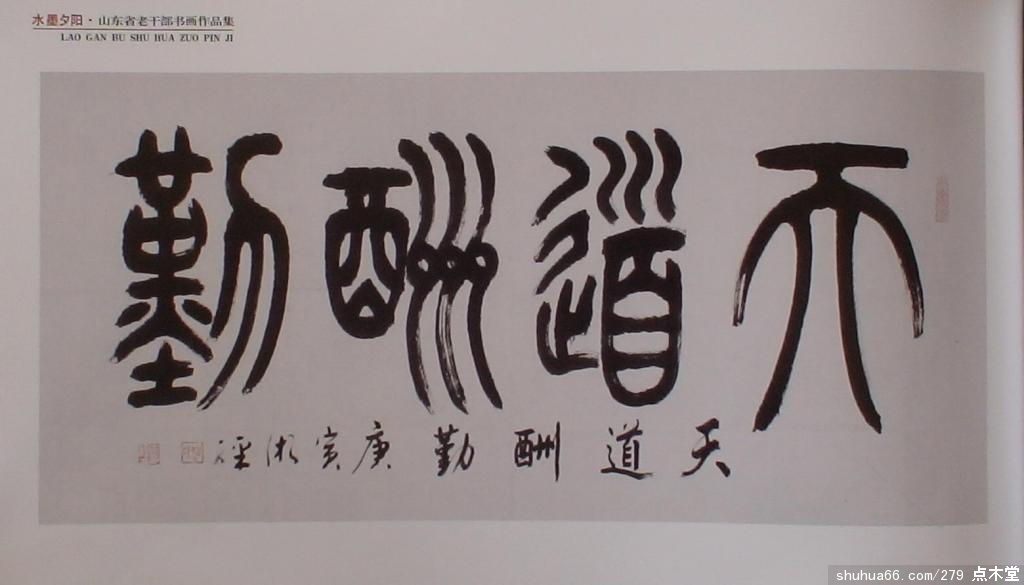 水墨夕阳·山东省老干部书画作品集
LAO GAN BU SHU HUA ZUO PIN JI
天道酬勤
天道酬勤 庚寅
shuhua66.com/279 点木堂